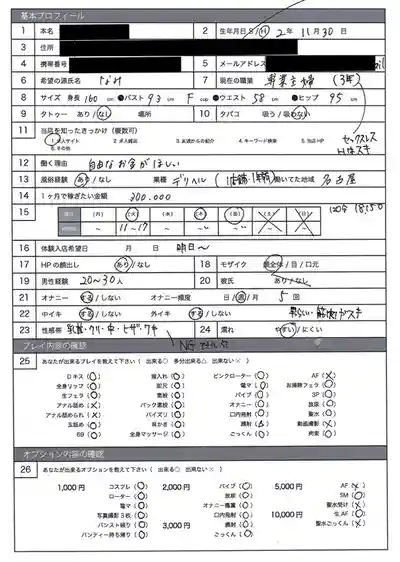 基本プロフィール
1 本名 2 生年月日 S/H 2年 11月 30日
3 住所
4 携帯番号 5 メールアドレス
6 希望の源氏名 なみ 7 現在の職業 専業主婦 (3年)
8 サイズ 身長 160 cm ●バスト 93 cm F cup ●ウエスト 58 cm ●ヒップ 95 cm
9 タトゥー あり/なし 場所 10 タバコ 吸う/吸わない
11 当店を知ったきっかけ (複数可)
1.求人サイト 2.求人雑誌 3.友達からの紹介 4.キーワード検索 5.当店HP
6.その他
セックスレス
Hはスキ
12 働く理由 自由なお金がほしい
13 風俗経験 あり/なし 業種 デリヘル 働いてた地域 名古屋
14 1ヶ月で稼ぎたい金額 300.000
15 曜日 [月] (火) (水) (木) (金) (土) (日)
時間 ~ 11~17 ~ ~ ~ ~ ~
16 体験入店希望日 月 日 明日~
17 HPの顔出し あり/なし 18 モザイク 顔全体/目/口元
19 男性経験 20~30人 20 彼氏 あり/なし
21 オナニー する/しない オナニー頻度 日/週/月 5回
22 中イキ する/しない 外イキ する/しない
23 性感帯 乳首・クリ・中・ヒザ・ワキ 24 濡れ やすい/にくい
プレイ内容の確認
25 あなたが出来るプレイを教えて下さい ( 出来る○ 多分出来る△ 出来ない× )
Dキス (○) 指入れ (○) ピンクローター (○) AF (×)
全身リップ (○) 即尺 (○) 電マ (○) お掃除フェラ (○)
生フェラ (○) 素股 (○) バイブ (○) 3P (○)
アナル舐め (×) バック素股 (○) オナニー (○) 放尿 (○)
アナル舐められ (×) パイズリ (○) 口内発射 (○) 聖水 (○)
玉舐め (○) 耳かき (○) 顔射 (△) 動画撮影 (×)
69 (○) 全身マッサージ (○) ごっくん (○) 拘束 (○)
オプション内容の確認
26 あなたが出来るオプションを教えて下さい ( 出来る○ 出来ない× )
1,000円 コスプレ (○) 2,000円 バイブ (○) 5,000円 AF (×)
ローター (○) 放尿 (○) SM (○)
電マ (○) オナニー鑑賞 (○) 聖水受け (×)
写真撮影3枚 (○) 口内発射 (○) 10,000円 生AF (×)
パンスト破り (○) 3,000円 顔射 (○) 聖水ごっくん (×)
パンティー持ち帰り (○) ごっくん (○)